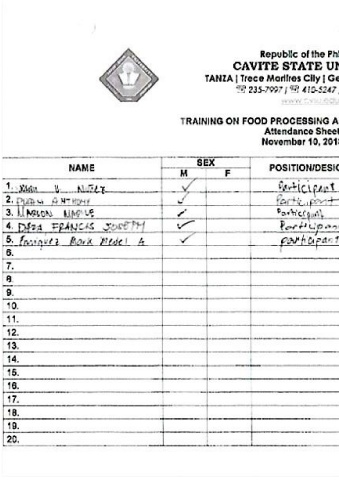 Republic of the Phi
CAVITE STATE UN
TANZA | Trece Martires City | Ge
235-7997 | 410-5247 /
www.cvsu.edu
TRAINING ON FOOD PROCESSING A
Attendance Sheet
November 10, 201
NAME SEX POSITION/DESIG
M F
1. ✓ Participant
2. ANTHONY ✓ Participant
3. MARLON ✓ Participant
4. DAZA FRANCIS JOSEPH ✓ Participan
5. Mark Medel A ✓ participant
6.
7.
8.
9.
10.
11.
12.
13.
14.
15.
16.
17.
18.
19.
20.